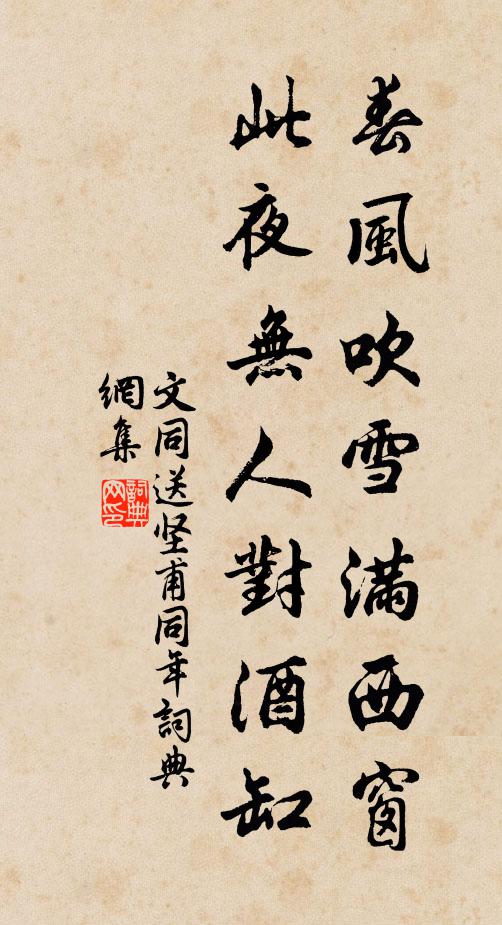 春風吹雪滿西窗
此夜無人對酒缸
文同送坚甫同年詞典
網集
詞典網印